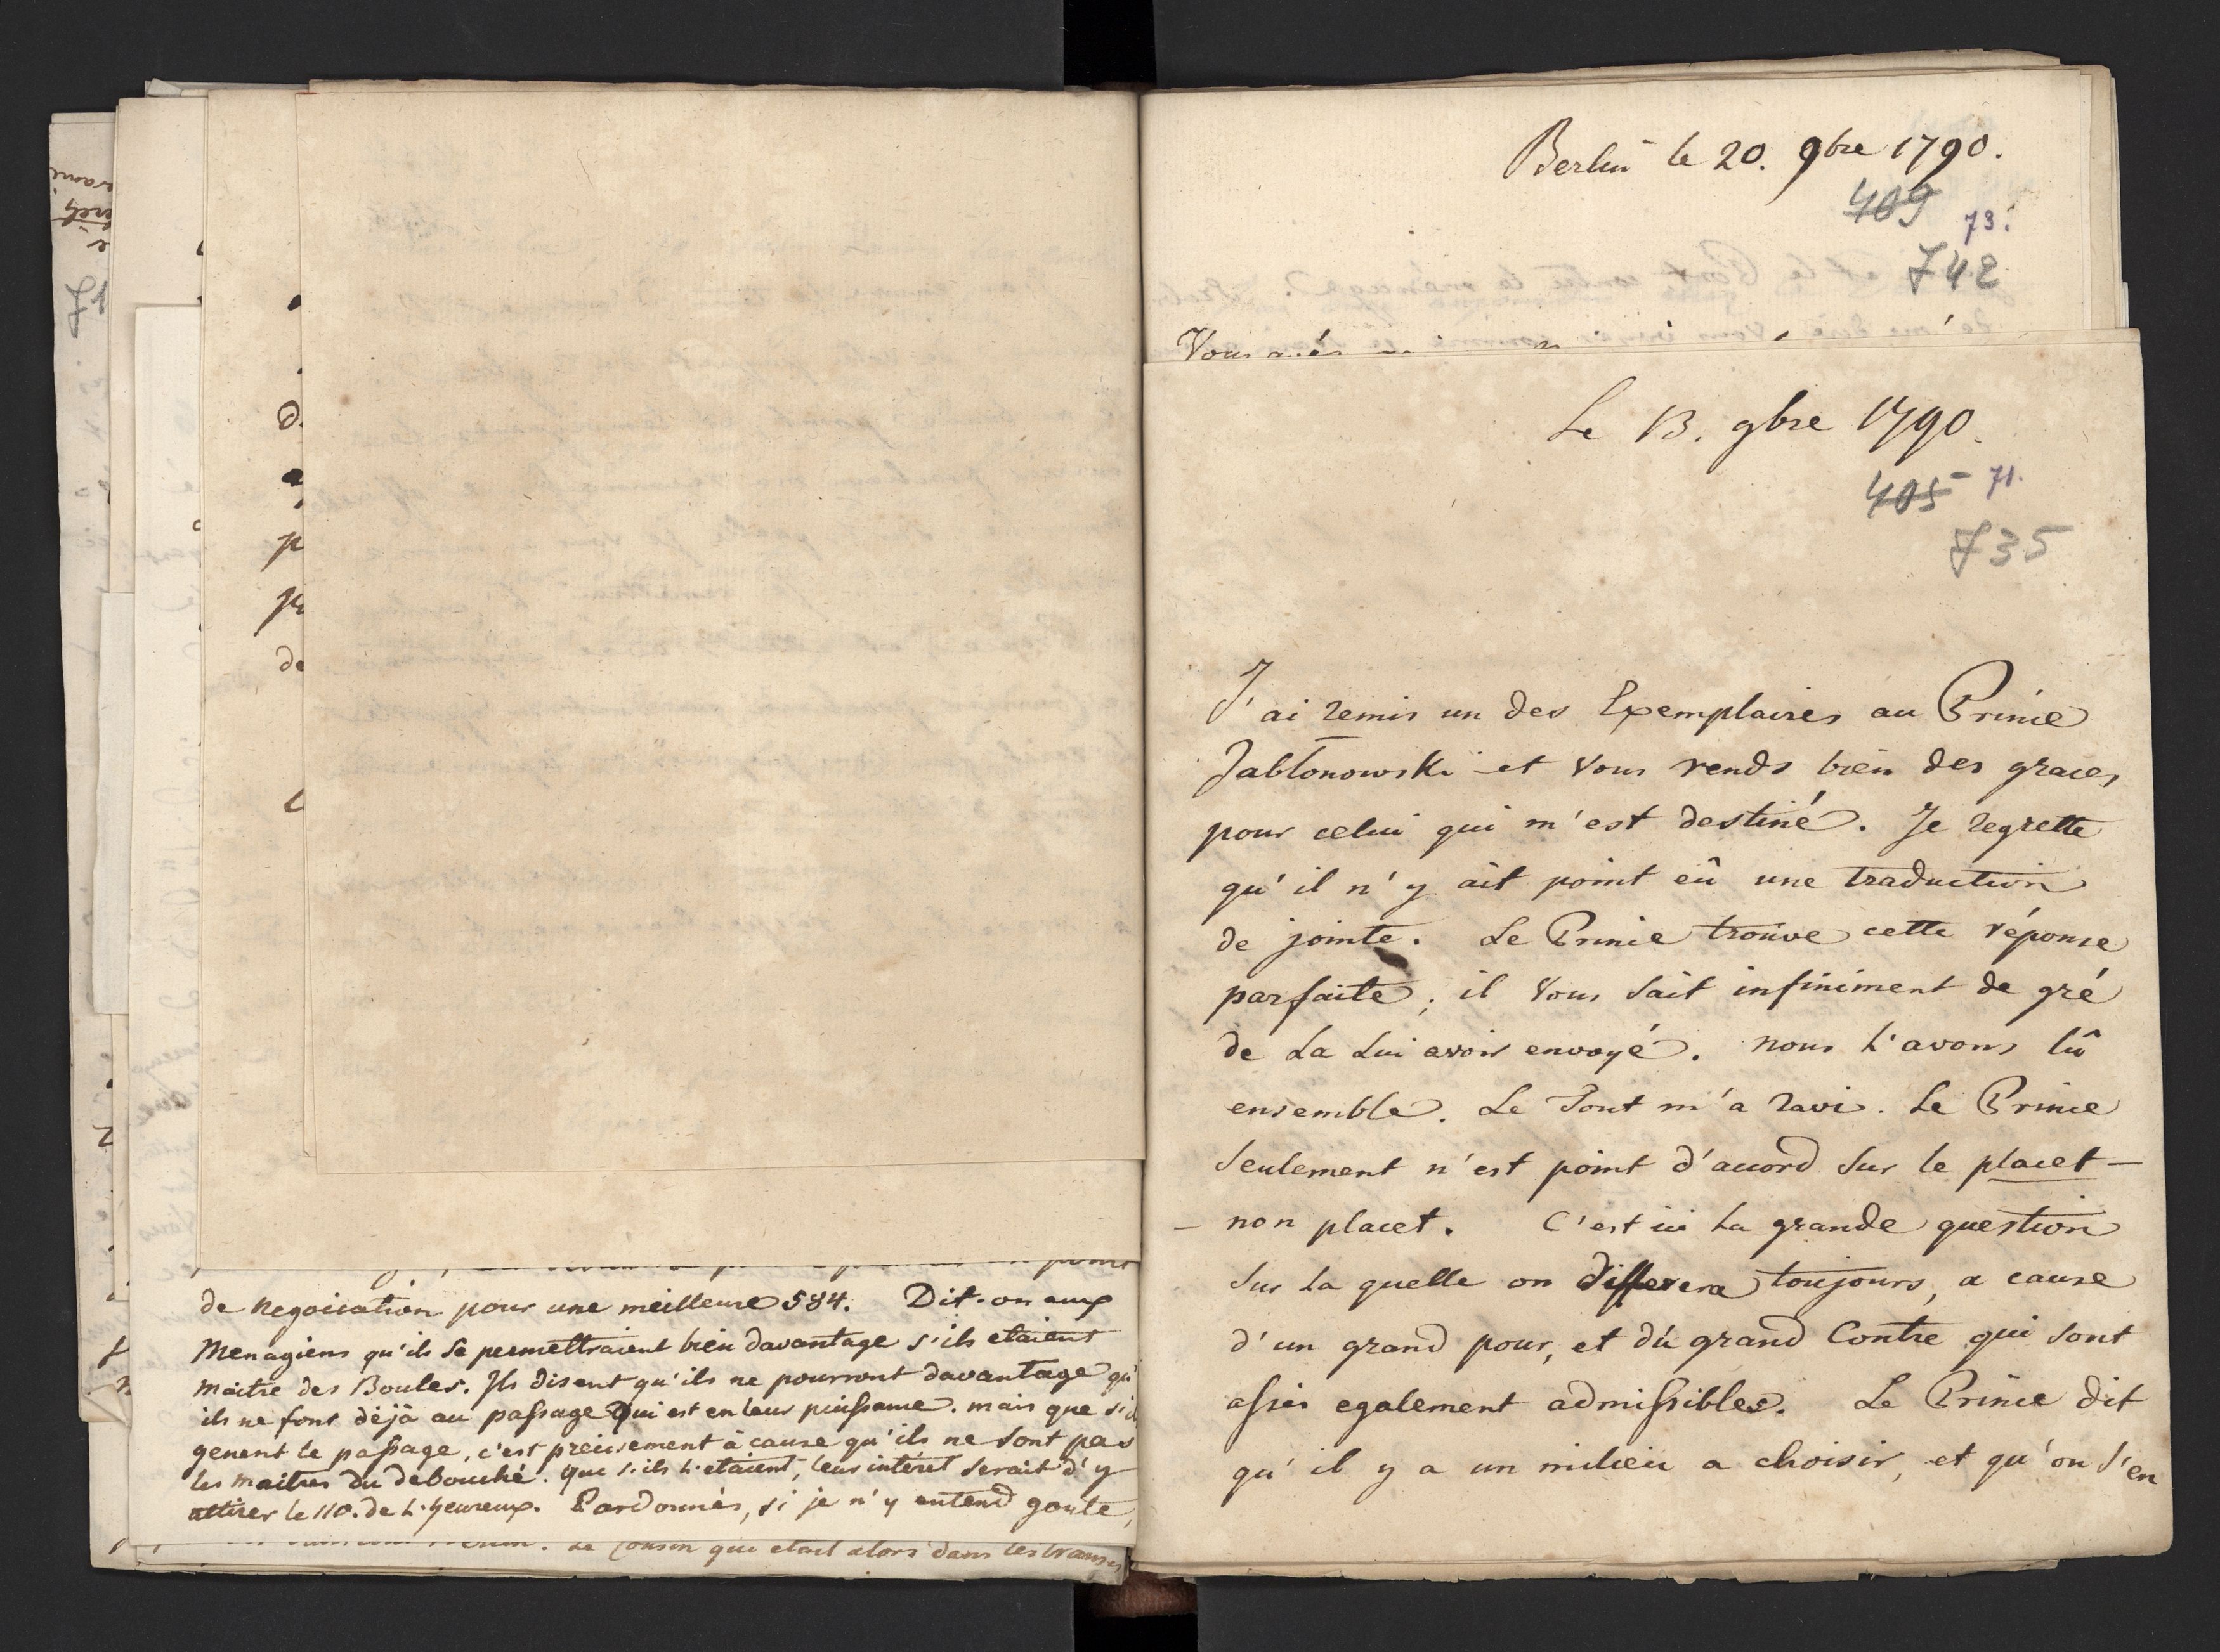 de negociation pour une meilleure 584. Dit-on aux
Menagiens qu'ils se permettraient bien davantage s'ils etaient
maitre des Boules. Ils disent qu'ils ne pourront davantage qu'
ils ne font dèjà au paſsage Qui est en leur puiſsance. mais que s'il
genent le paſsage, c'est precisement à cause qu'ils ne sont pas
les maitres du debouché. que s'ils l'etaient, leur intéret serait d'y
attirer le 110. de l'heureux. Pardonnés, si je n'y entend goute,
Le Cousin qui etait alors dans les
Berlin le 20. 9bre 1790.
409 73.
742
Vous
Le 13. 9bre 1790.
405 71.
735
J'ai remis un des Exemplaires au Prince
Jabłonowski et Vous rends bien des graces
pour celui qui m'est destiné. Je regrette
qu'il n'y ait point eû une traduction
de jointe. Le Prince trouve cette réponse
parfaite; il Vous sait infiniment de gré
de La Lui avoir envoyé. nous l'avons lû
ensemble. Le Tout m'a ravi. Le Prince
seulement n'est point d'accord sur le placet —
— non placet. C'est ici la grande question
sur la quelle on differera toujours, a cause
d'un grand pour, et du grand Contre qui sont
aſsés egalement admiſsibles. Le Prince dit
qu'il y a un milieu a choisir, et qu'on s'en